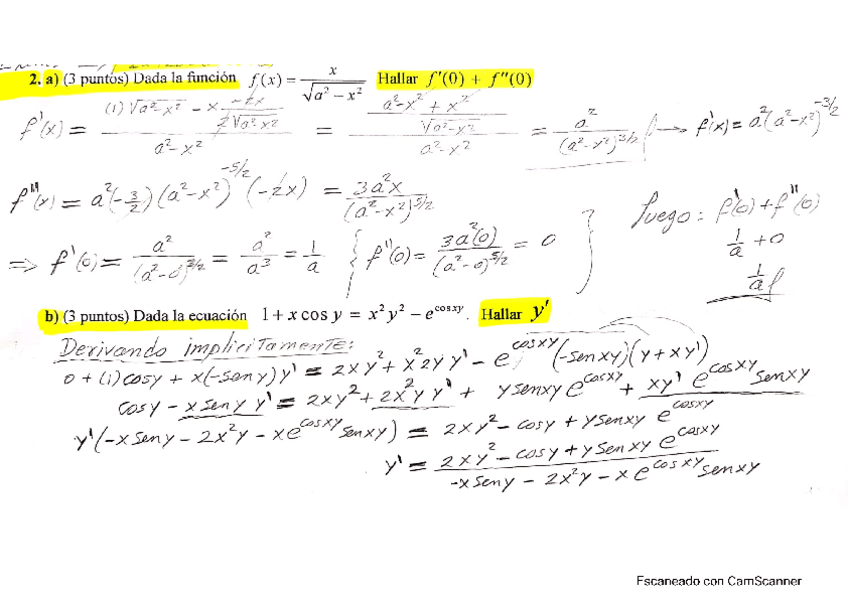 2. a) (3 puntos) Dada la función f(x) = x / √(a² − x²) Hallar f'(0) + f''(0)
f'(x) = ((1)√(a²−x²) − x · (−2x)/(2√(a²−x²))) / (a²−x²) = ((a²−x²+x²)/√(a²−x²)) / (a²−x²) = a²/(a²−x²)^(3/2) → f'(x) = a²(a²−x²)^(−3/2)
f''(x) = a²(−3/2)(a²−x²)^(−5/2)(−2x) = 3a²x/(a²−x²)^(5/2)
Luego: f'(0)+f''(0)
⇒ f'(0) = a²/(a²−0)^(3/2) = a²/a³ = 1/a { f''(0) = 3a²(0)/(a²−0)^(5/2) = 0 }
1/a + 0
1/a
b) (3 puntos) Dada la ecuación 1 + x cos y = x² y² − e^(cos xy). Hallar y'
Derivando implicitamente:
0 + (1) cosy + x(−seny)y' = 2xy² + x²2yy' − e^(cosxy)(−senxy)(y+xy')
cosy − x seny y' = 2xy² + 2x²y y' + ysenxy e^(cosxy) + xy' e^(cosxy) senxy
y'(−x seny − 2x²y − xe^(cosxy) senxy) = 2xy² − cosy + ysenxy e^(cosxy)
y' = (2xy² − cosy + ysenxy e^(cosxy)) / (−x seny − 2x²y − x e^(cosxy) senxy)
Escaneado con CamScanner